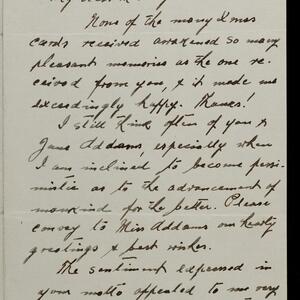 None of the many Xmas
cards received awakened so many
pleasant memories as the one re-
ceived from you, & it made me
exceedingly happy. Thanks!
I still think often of you &
Jane Addams, especially when
I am inclined to become pessi-
mistic as to the advancement of
mankind for the better. Please
convey to Miss Addams our hearty
greetings & best wishes.
The sentiment expressed in
your motto appealed to me very